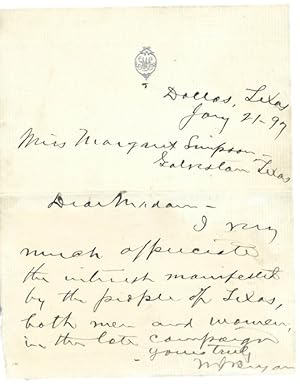 Dallas, Texas
Jany 21-97
Miss Margaret Simpson
Galveston Texas
Dear Madam -
I very
much appreciate
the interest manifested
by the people of Texas,
both men and women,
in the late campaign
yours truly
WJ Bryan